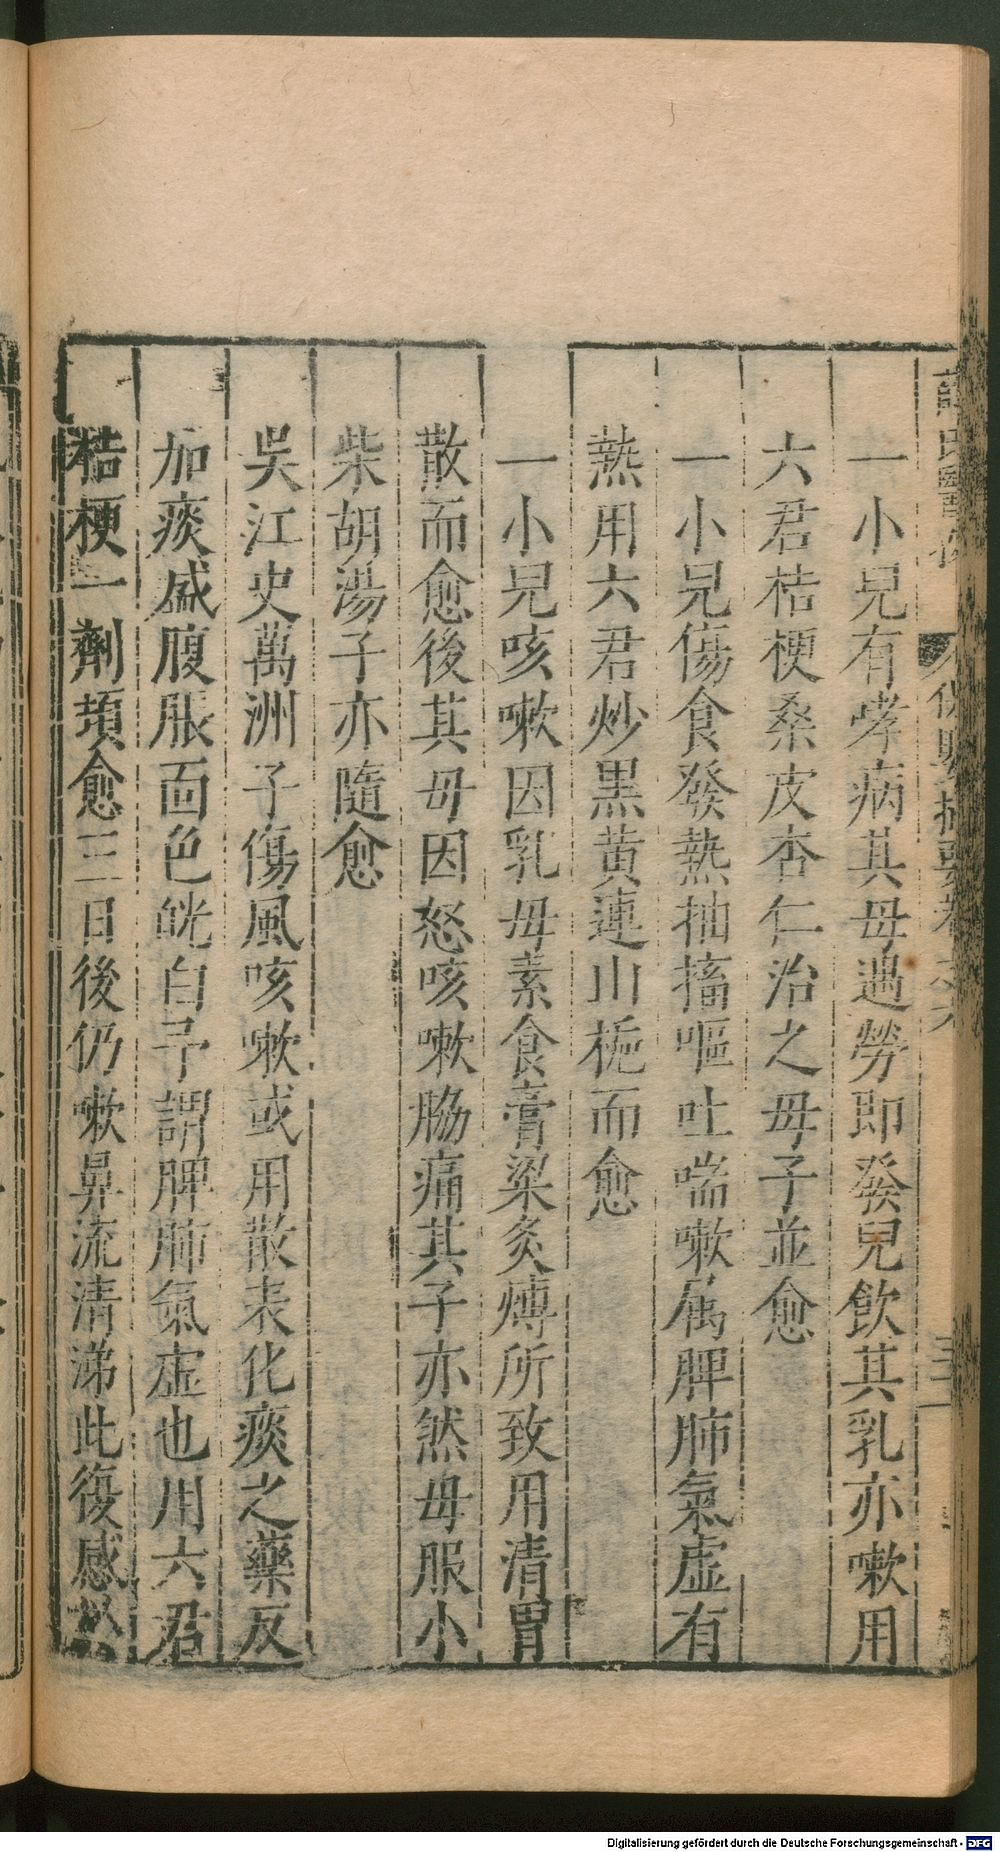 薛氏醫按 保嬰撮要卷之六 三十一
一小兒有哮病其母遇勞即發兒飲其乳亦嗽用
六君桔梗桑皮杏仁治之母子並愈
一小兒傷食發熱抽搐嘔吐喘嗽属脾肺氣虛有
熱用六君炒黑黄連山梔而愈
一小兒咳嗽因乳母素食膏粱炙煿所致用清胃
散而愈後其母因怒咳嗽脇痛其子亦然母服小
柴胡湯子亦隨愈
吳江史萬洲子傷風咳嗽或用散表化痰之藥反
加痰盛腹脹面色㿠白予謂脾肺氣虛也用六君
桔梗一劑頓愈三日後仍嗽鼻流清涕此復感
Digitalisierung gefördert durch die Deutsche Forschungsgemeinschaft - DFG